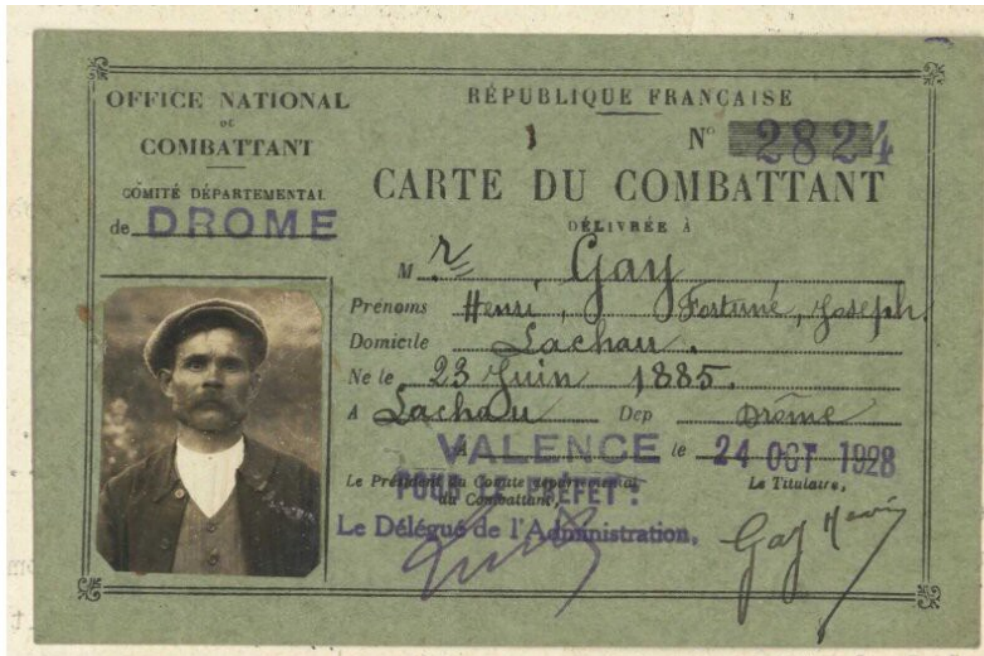 OFFICE NATIONAL
DU
COMBATTANT
COMITÉ DÉPARTEMENTAL
de DROME
RÉPUBLIQUE FRANÇAISE
N° 2824
CARTE DU COMBATTANT
DÉLIVRÉE À
M r Gay
Prénoms Henri, Fortuné, Joseph.
Domicile Lachau.
Ne le 23 Juin 1885.
A Lachau Dep Drôme
A VALENCE le 24 OCT 1928
Le Président du Comite départemental
du Combattant,
POUR LE PRÉFET :
Le Délégué de l'Administration,
Le Titulaire,
Gay Henri